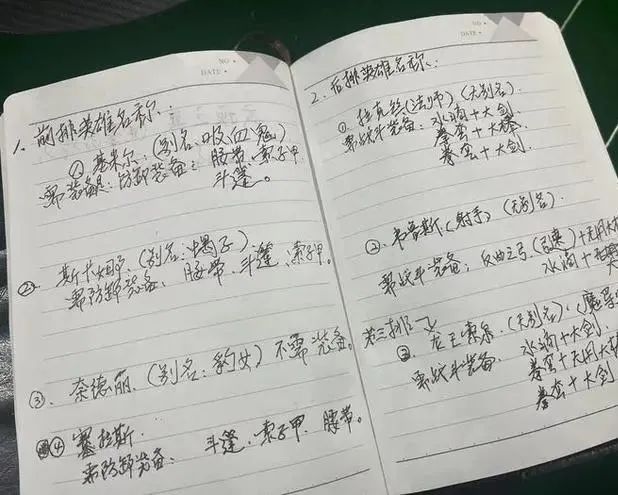 NO •
DATE •
1. 前排英雄名称:
① 基来尔: (别名: 吸血鬼)
需装备: 防卸装备: 腰带、索子甲
斗篷。
② 斯卡娜 (别名: 蝎子)
需防卸装备、腰带、斗篷、索子甲。
③. 奈德丽. (别名: 豹女) 不需装备。
④ 塞拉斯.
需防卸装备: 斗篷、索子甲、腰带。
NO •
DATE •
2. 后排英雄名称:
① 拉克丝(法师) (无别名).
需战斗装备: 水滴+大剑.
拳套+大棒.
拳套+大剑.
②. 韦鲁斯, (射手) (无别名).
需战斗装备: 反曲之弓 (弓速) +无用大
水滴+无用
第三排
③. 龙王索尔. (无别名). (魔导
需战斗装备 水滴+大剑.
拳套+无用大棒
拳套+大剑